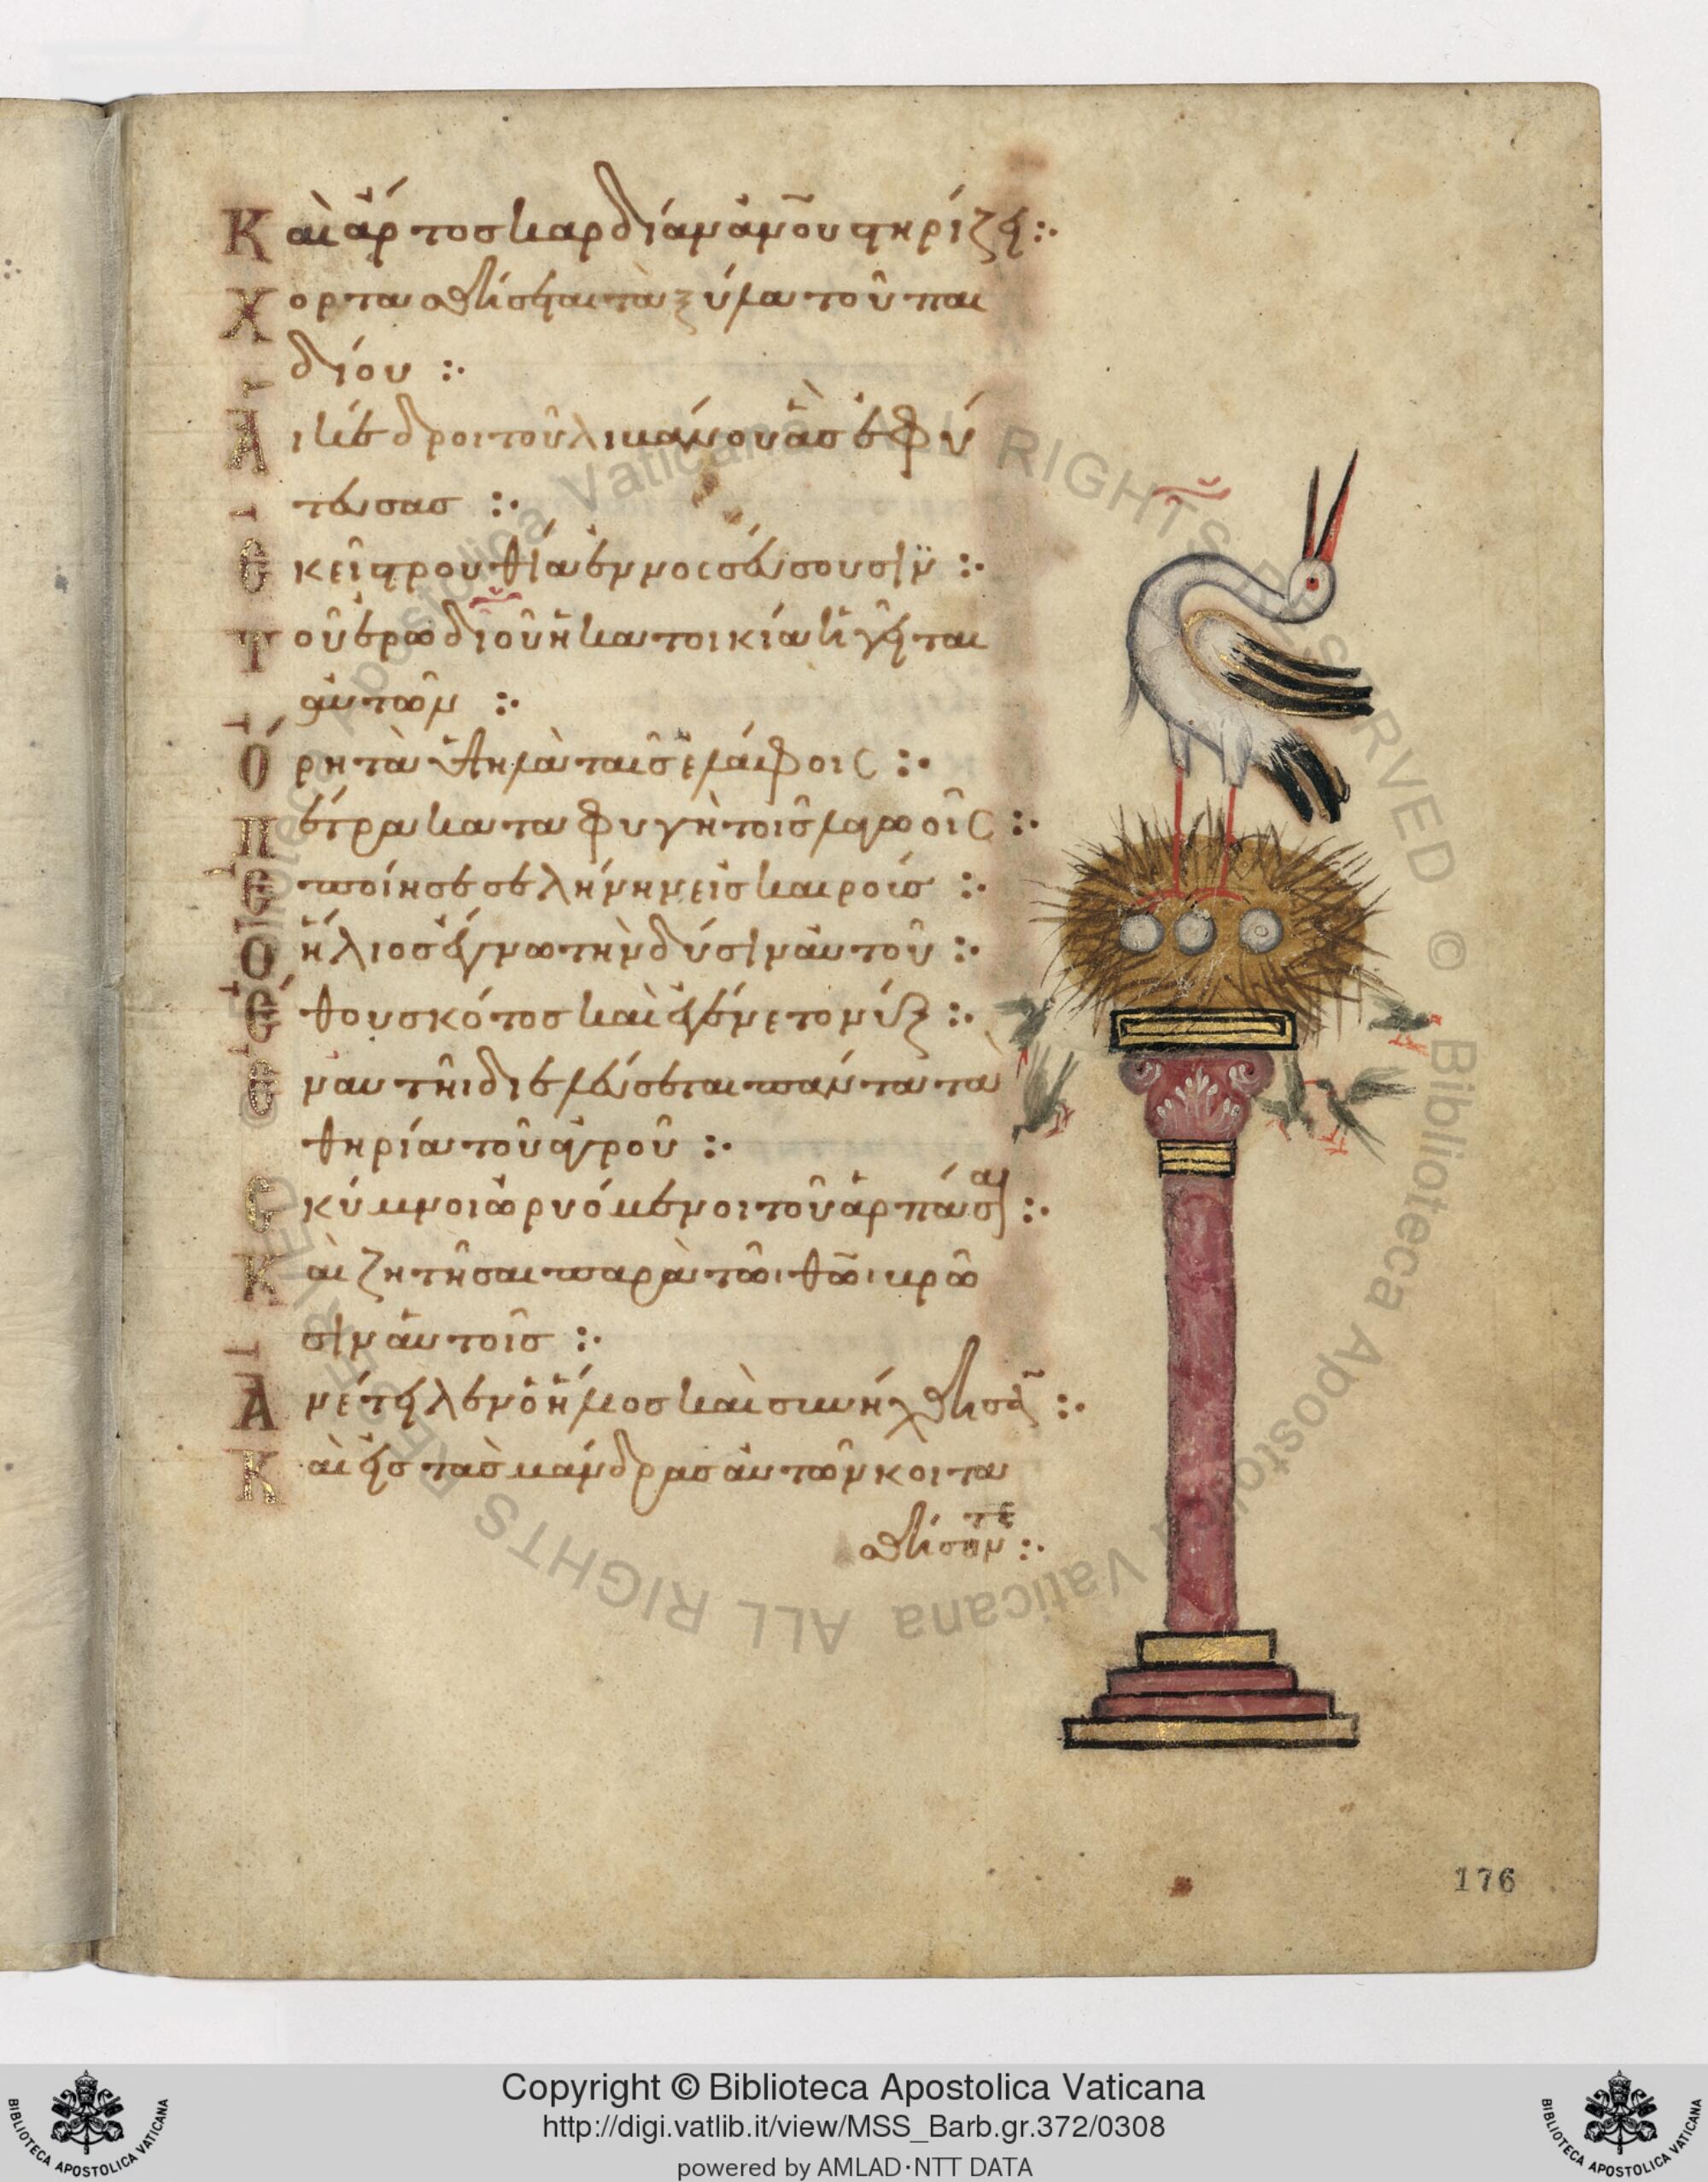 Καὶ ἄρτος καρδίαν ἀνου στηρίζει:·
Χορτασθήσεται τὰ ξύλα τοῦ παι
δίου :·
Αἱ κέδροι τοῦ λιβάνου ἃς ἐφύ
τευσας :·
Ἐκεῖ στρουθία ἐννοσσεύσουσιν :·
Τοῦ ἐρωδιοῦ ἡ κατοικία ἡγεῖται
αὐτῶν :·
Ὄρη τὰ ὑψηλὰ ταῖς ἐλάφοις :·
Πέτρα καταφυγὴ τοῖς λαγωοῖς :·
Ἐποίησε σελήνην εἰς καιρούς :·
Ὁ ἥλιος ἔγνω τὴν δύσιν αὐτοῦ :·
Ἔθου σκότος καὶ ἐγένετο νύξ :·
Ἐν αὐτῆι διελεύσεται πάντα τὰ
θηρία τοῦ ἀγροῦ :·
Σκύμνοι ὠρυόμενοι τοῦ ἁρπάσαι :·
Καὶ ζητῆσαι παρὰ τῶι θῶι βρῶ
σιν αὐτοῖς :·
Ἀνέτειλεν ὁ ἥλιος καὶ συνήχθησαν :·
Καὶ εἰς τὰς μάνδρας αὐτῶν κοιτα
σθήσονται :·
176
BIBLIOTECA APOSTOLICA VATICANA
Copyright © Biblioteca Apostolica Vaticana
http://digi.vatlib.it/view/MSS_Barb.gr.372/0308
powered by AMLAD·NTT DATA
BIBLIOTECA APOSTOLICA VATICANA
© Biblioteca Apostolica Vaticana ALL RIGHTS RESERVED © Biblioteca Apostolica Vaticana ALL RIGHTS RESERVED